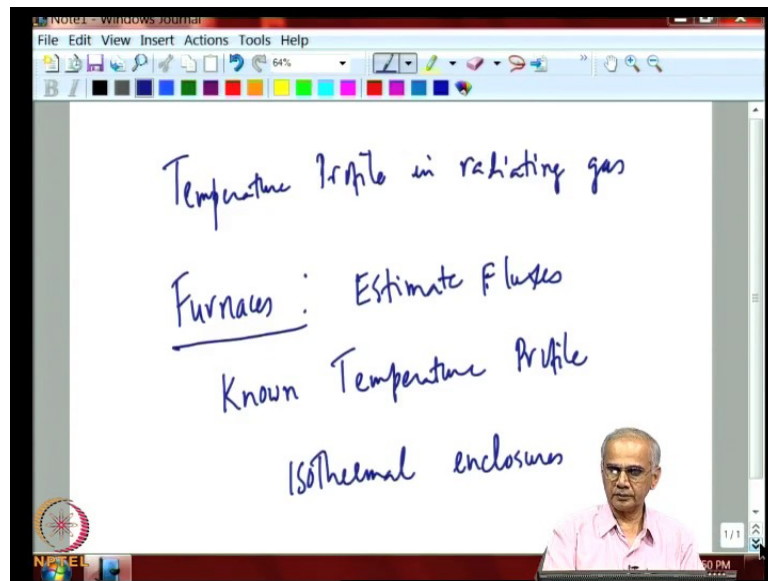 Note1 - Windows Journal
File Edit View Insert Actions Tools Help
64%
B I
Temperature Profile in radiating gas
Furnaces : Estimate Fluxes
Known Temperature Profile
Isothermal enclosures
1/1
NPTEL
50 PM